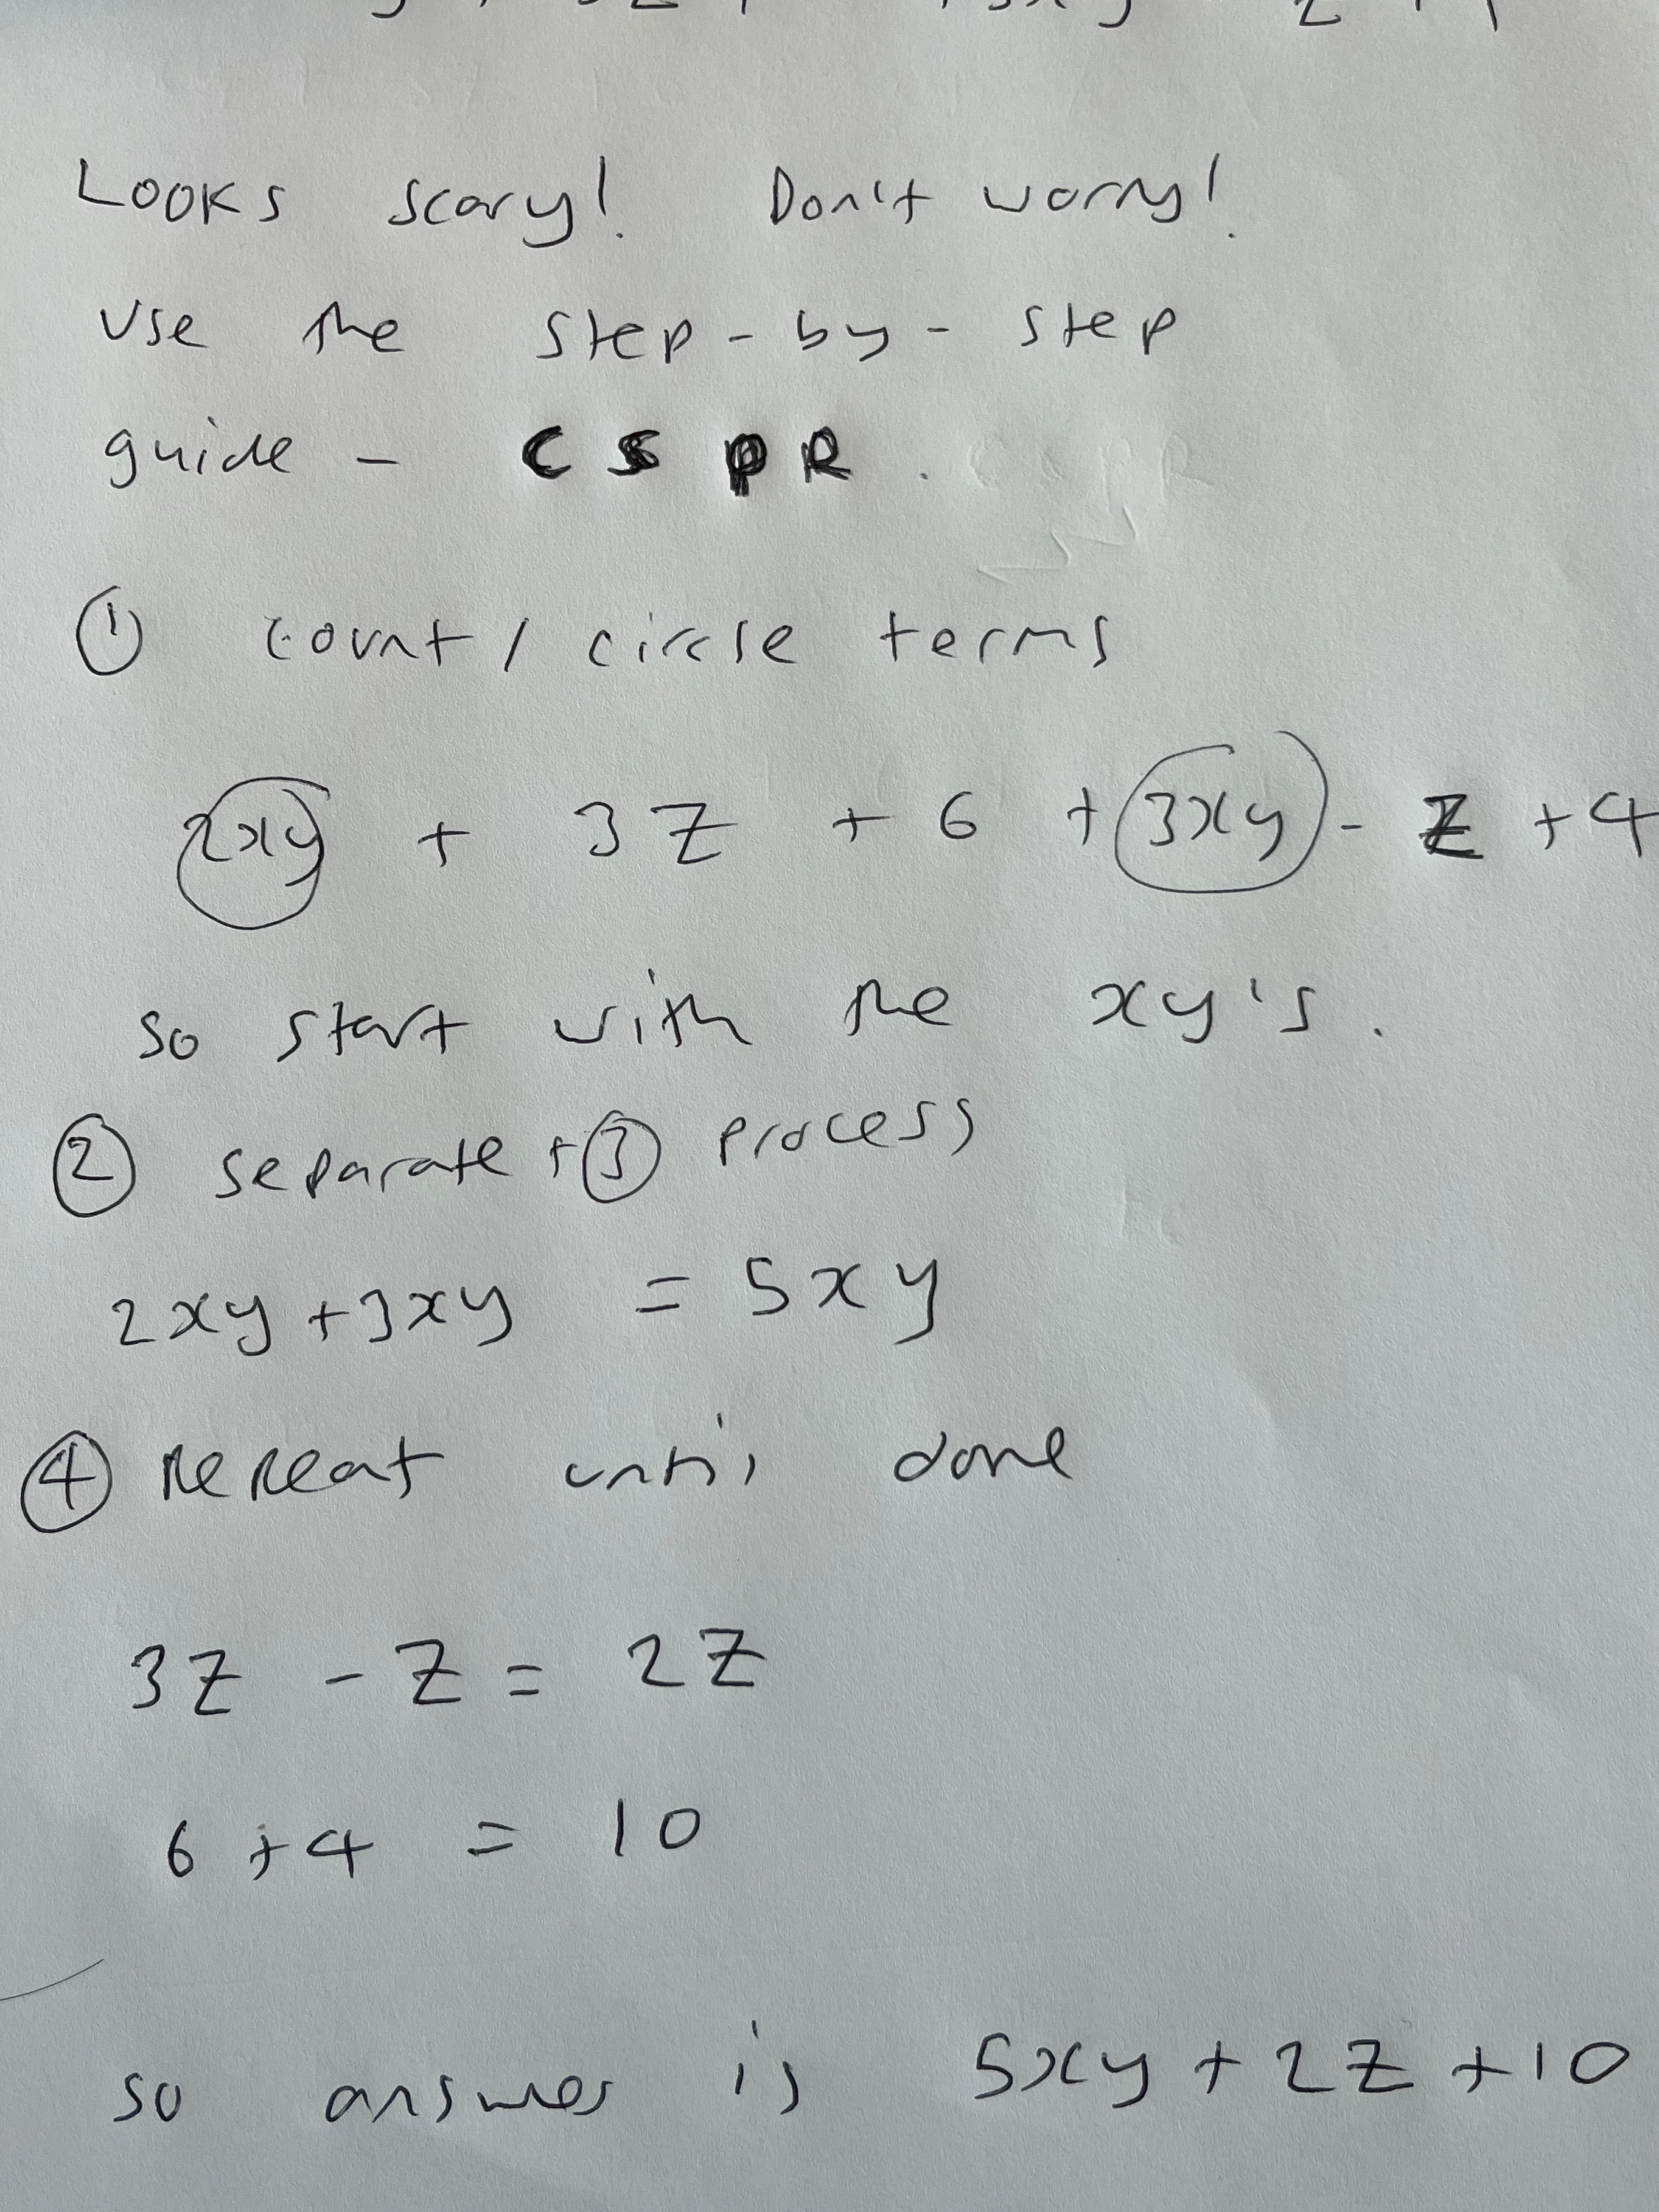 Looks scary! Don't worry!
Use the step-by-step
guide - CSPR.
① count / circle terms
2xy + 3z + 6 + 3xy - z + 4
so start with the xy's.
② separate + ③ process
2xy + 3xy = 5xy
④ Repeat until done
3z - z = 2z
6 + 4 = 10
so answer is 5xy + 2z + 10